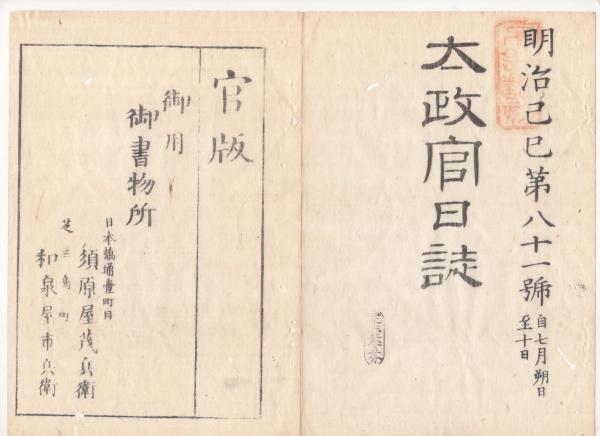 明治己巳第八十一號
自七月朔日
至十日
太政官日誌
官版
御用
御書物所
日本橋通壹町目
須原屋茂兵衛
芝三島町
和泉屋市兵衛